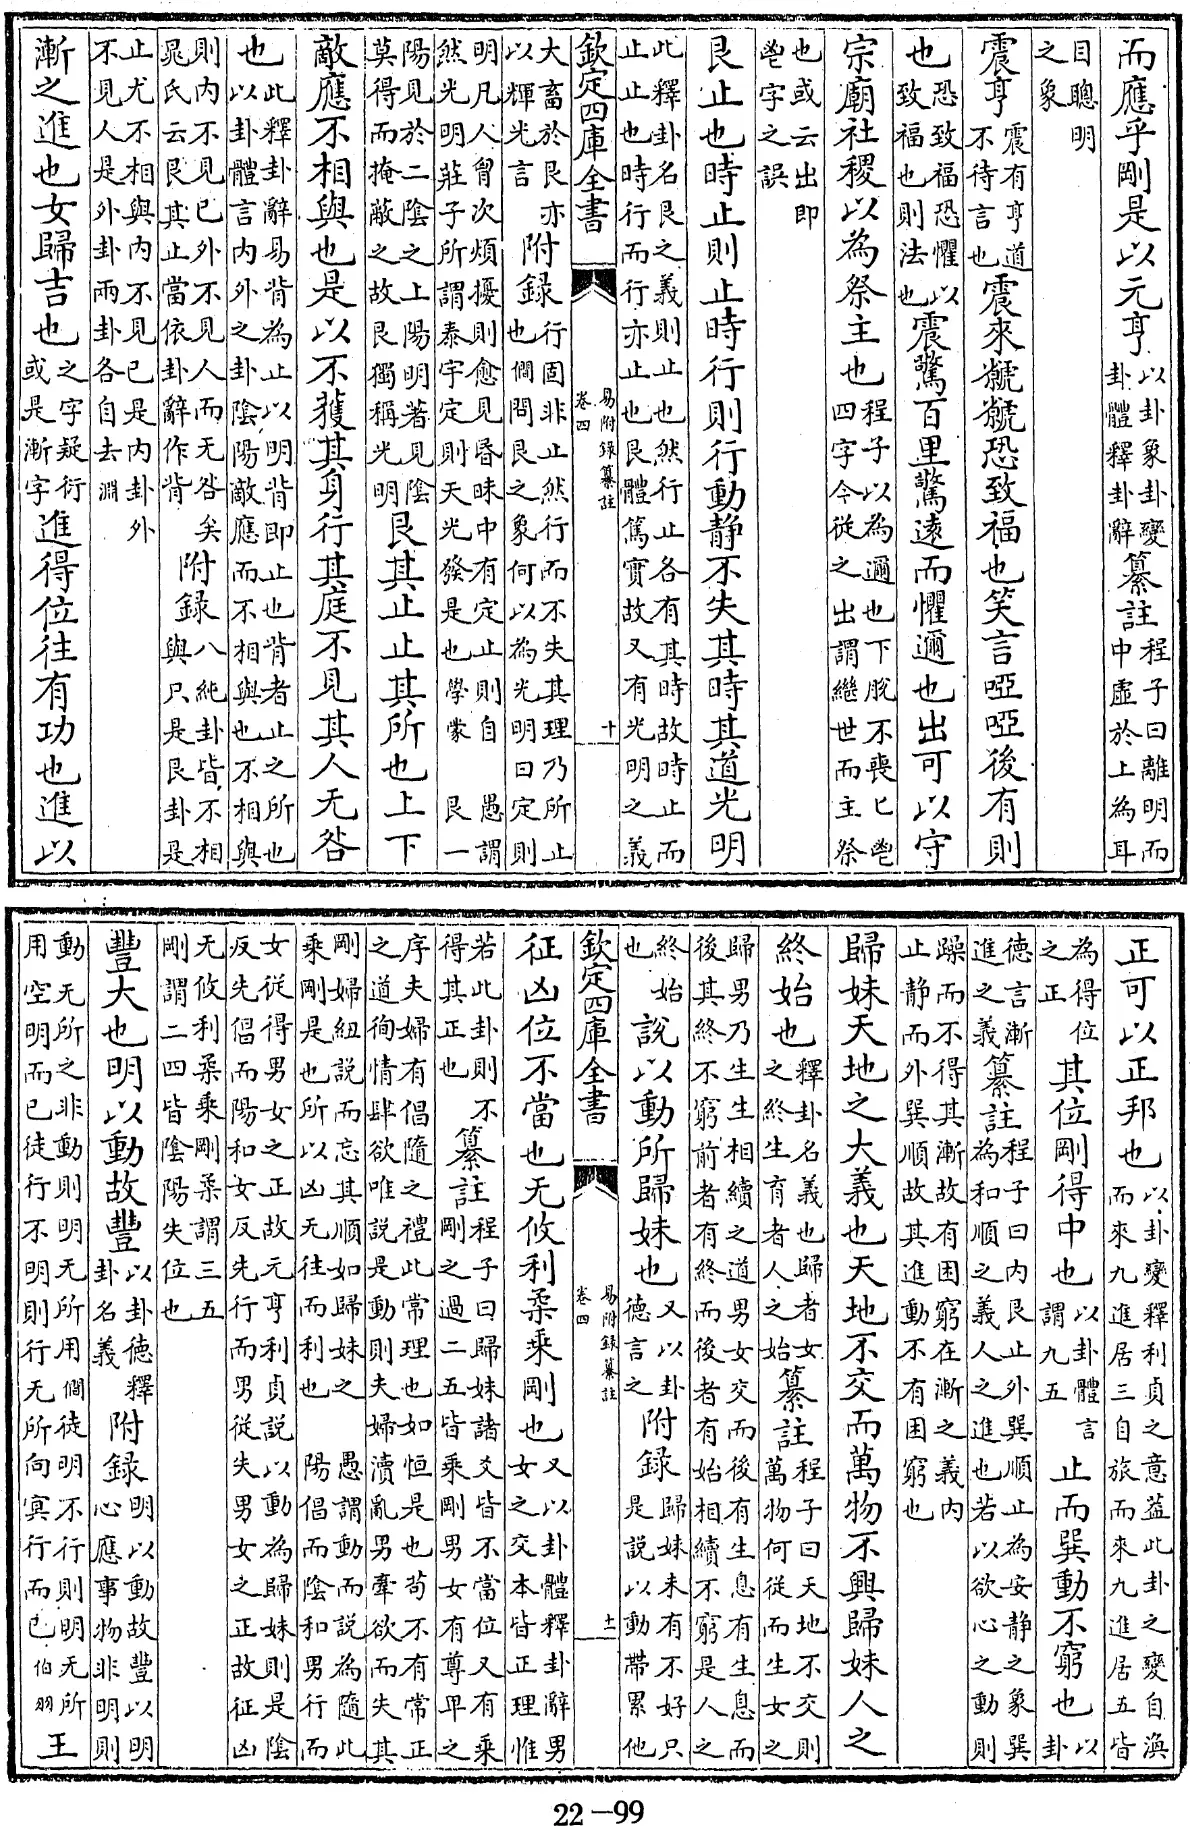 而應乎剛是以元亨以卦象卦變卦體釋卦辭纂註程子曰離明而中虛於上為耳
目聰明之象
震亨震有亨道不待言也震來虩虩恐致福也笑言啞啞後有則
也恐致福恐懼以致福也則法也震驚百里驚遠而懼邇也出可以守
宗廟社稷以為祭主也程子以為邇也下脫不喪匕鬯四字今從之出謂繼世而主祭
也或云出即鬯字之誤
艮止也時止則止時行則行動静不失其時其道光明
此釋卦名艮之義則止也然行止各有其時故時止而止止也時行而行亦止也艮體篤實故又有光明之義
欽定四庫全書 易附録纂註 卷四 十
大畜於艮亦以輝光言附録行固非止然行而不失其理乃所止也僩問艮之象何以為光明曰定則
明凡人胷次煩擾則愈見昏昧中有定止則自然光明莊子所謂泰宇定則天光發是也學蒙 愚謂艮一
陽見於二陰之上陽明著見陰莫得而掩蔽之故艮獨稱光明艮其止止其所也上下
敵應不相與也是以不獲其身行其庭不見其人无咎
也此釋卦辭易背為止以明背即止也背者止之所也以卦體言内外之卦陰陽敵應而不相與也不相與
則内不見已外不見人而无咎矣晁氏云艮其止當依卦辭作背附録八純卦皆不相與只是艮卦是
止尤不相與内不見已是内卦外不見人是外卦兩卦各自去淵
漸之進也女歸吉也之字疑衍或是漸字進得位往有功也進以
正可以正邦也以卦變釋利貞之意葢此卦之變自渙而來九進居三自旅而來九進居五皆
為得位之正其位剛得中也以卦體言謂九五止而巽動不窮也以卦
德言漸進之義纂註程子曰内艮止外巽順止為安静之象巽為和順之義人之進也若以欲心之動則
躁而不得其漸故有困窮在漸之義内止静而外巽順故其進動不有困窮也
歸妹天地之大義也天地不交而萬物不興歸妹人之
終始也釋卦名義也歸者女之終生育者人之始纂註程子曰天地不交則萬物何從而生女之
歸男乃生生相續之道男女交而後有生息有生息而後其終不窮前者有終而後者有始相續不窮是人之
終始也說以動所歸妹也又以卦德言之附録歸妹未有不好只是説以動帶累他
欽定四庫全書 易附録纂註 卷四 十一
若此卦則不得其正也纂註
征凶位不當也无攸利柔乘剛也又以卦體釋卦辭男女之交本皆正理惟
若此卦則不得其正也纂註程子曰歸妹諸爻皆不當位又有乘剛之過二五皆乘剛男女有尊卑之
序夫婦有倡隨之禮此常理也如恒是也苟不有常正之道徇情肆欲唯説是動則夫婦瀆亂男牽欲而失其
剛婦紐説而忘其順如歸妹之乘剛是也所以凶无往而利也 愚謂動而説為隨此陽倡而陰和男行而
女從得男女之正故元亨利貞説以動為歸妹則是陰反先倡而陽和女反先行而男從失男女之正故征凶
无攸利柔乘剛柔謂三五剛謂二四皆陰陽失位也
豐大也明以動故豐以卦德釋卦名義附録明以動故豐以明心應事物非明則
動无所之非動則明无所用僩徒明不行則明无所用空明而已徒行不明則行无所向㝠行而已伯羽王
22—99